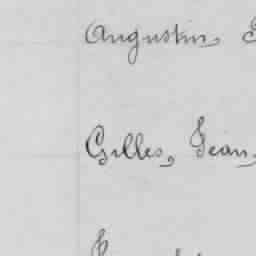 Augustin,
Gilles, Jean,